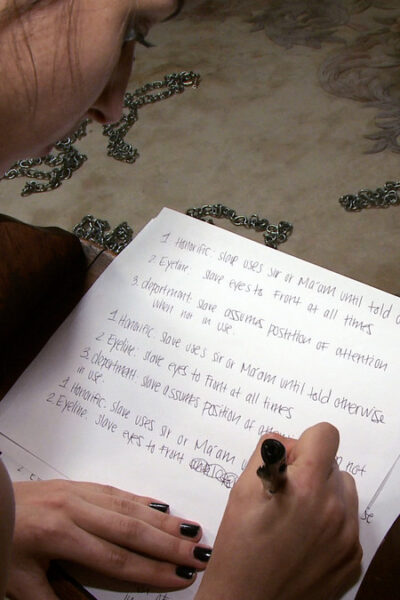 1 Honorific: slave uses Sir or Ma'am until told o
2 Eyeline: slave eyes to Front at all times
3. deportment: slave assumes postition of attention
when not in use.
1 Honorific: slave uses Sir or Ma'am until told otherwise
2. Eyeline: slave eyes to Front at all times
3. deportment: slave assumes position of not
in use.
1 Honorific: slave uses Sir or Ma'am u se
2. Eyeline: slave eyes to Front